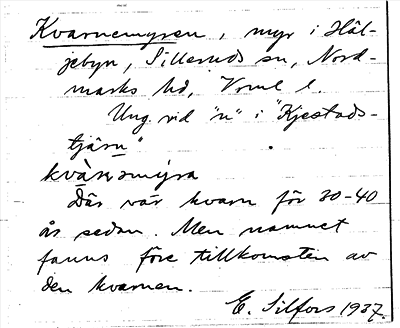 Kvarnemyren, myr i Häl-
jebyn, Silleruds sn, Nord-
marks hd, Vrml l.
Ung. vid "n" i "Kjestads-
tjärn"
kvà̤rnəmýra
Där var kvarn för 30-40
år sedan. Men namnet
fanns före tillkomsten av
den kvarnen.
E. Silfors 1937.